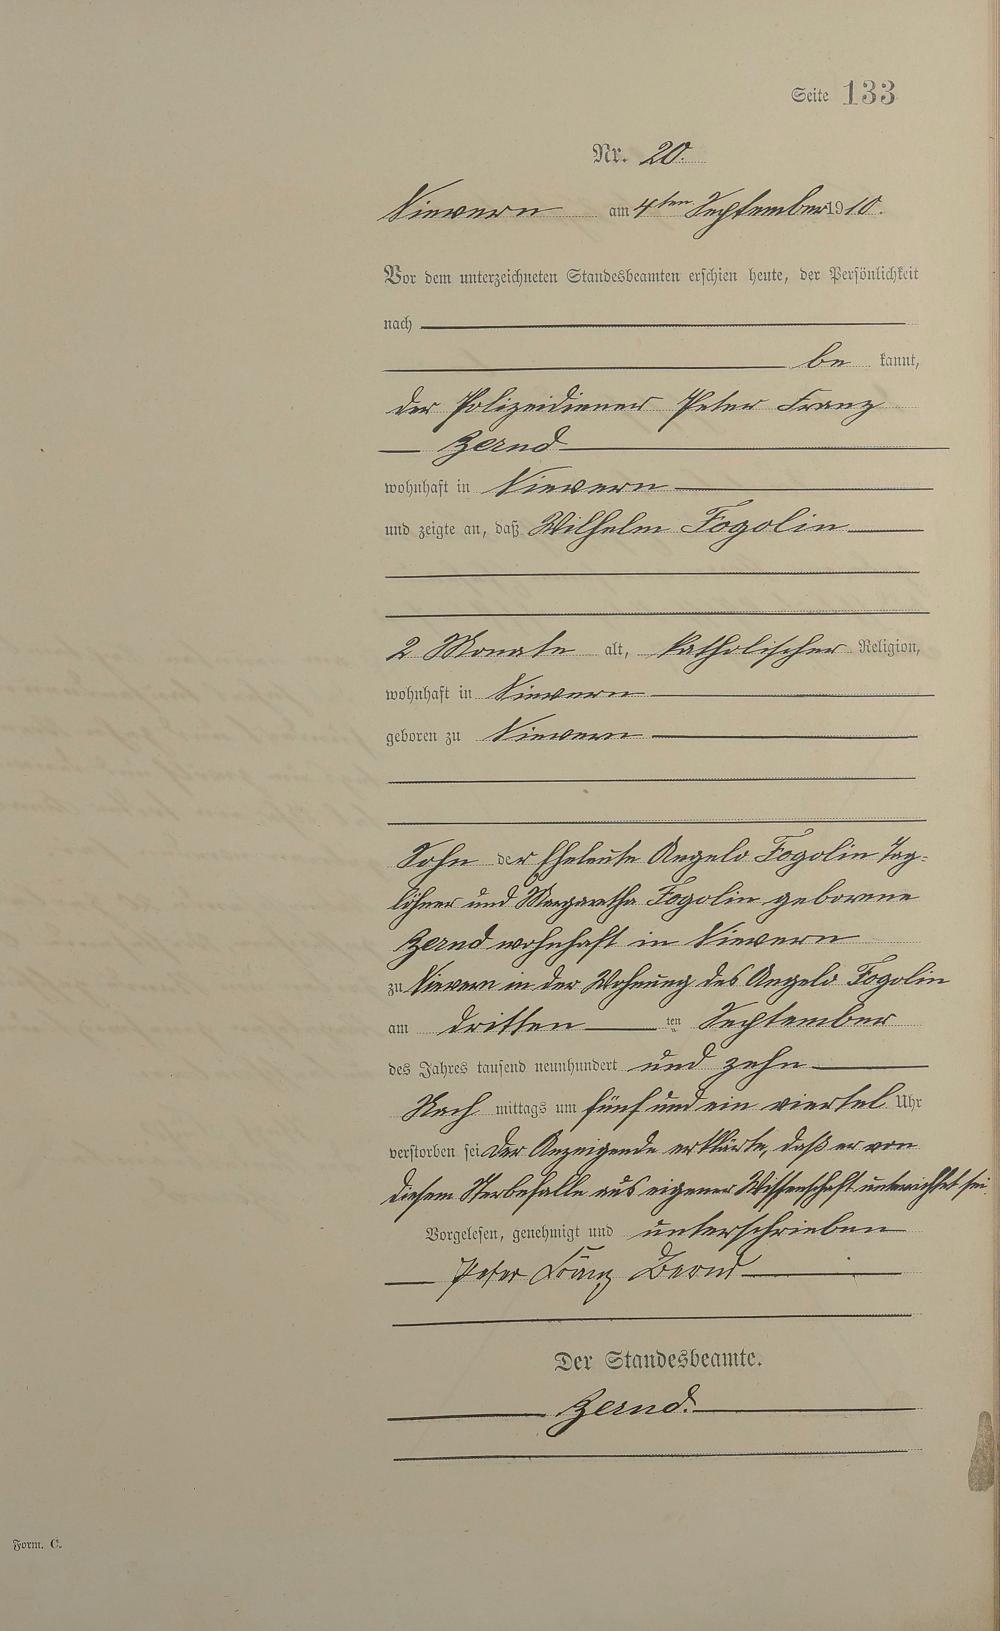 Seite 133
Nr. 20.
Nievern am 4ten September 1910.
Vor dem unterzeichneten Standesbeamten erschien heute, der Persönlichkeit
nach
be kannt,
der Polizeidiener Peter Franz
Zernd
wohnhaft in Nievern
und zeigte an, daß Wilhelm Fogolin
2 Monate alt, katholischer Religion,
wohnhaft in Nievern
geboren zu Nievern
Sohn der Eheleute Angelo Fogolin Tag-
löhner und Margaretha Fogolin geborene
Zernd wohnhaft in Nievern
zu Nievern in der Wohnung des Angelo Fogolin
am dritten ten September
des Jahres tausend neunhundert und zehn
Nach mittags um fünf und ein viertel Uhr
verstorben sei Der Anzeigende erklärte, daß er von
diesem Sterbefalle aus eigener Wissenschaft unterrichtet sei.
Vorgelesen, genehmigt und unterschrieben
Peter Franz Zernd
Der Standesbeamte.
Zernd.
Form. C.